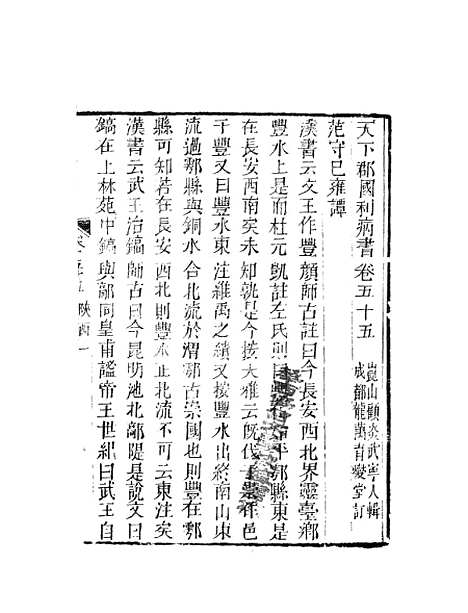 天下郡國利病書卷五十五
崑山顧炎武寧人輯
成都龍萬育燮堂訂
范守已雍譚
漢書云文王作豐顏師古註曰今長安西北界靈臺鄕
豐水上是而杜元凱註左氏則曰
平鄠縣東是
在長安西南矣未知孰是今按大雅云旣伐于崇作邑
于豐又曰豐水東注維禹之績又按豐水出終南山東
流過鄠縣與鎬水合北流於渭鄠古崇國也則豐在鄠
縣可知若在長安西北則豐水正北流不可云東注矣
漢書云武王治鎬師古曰今昆明池北鄗隄是說文曰
鎬在上林苑中鎬與鄗同皇甫謐帝王世紀曰武王自
卷五十五 陝西一